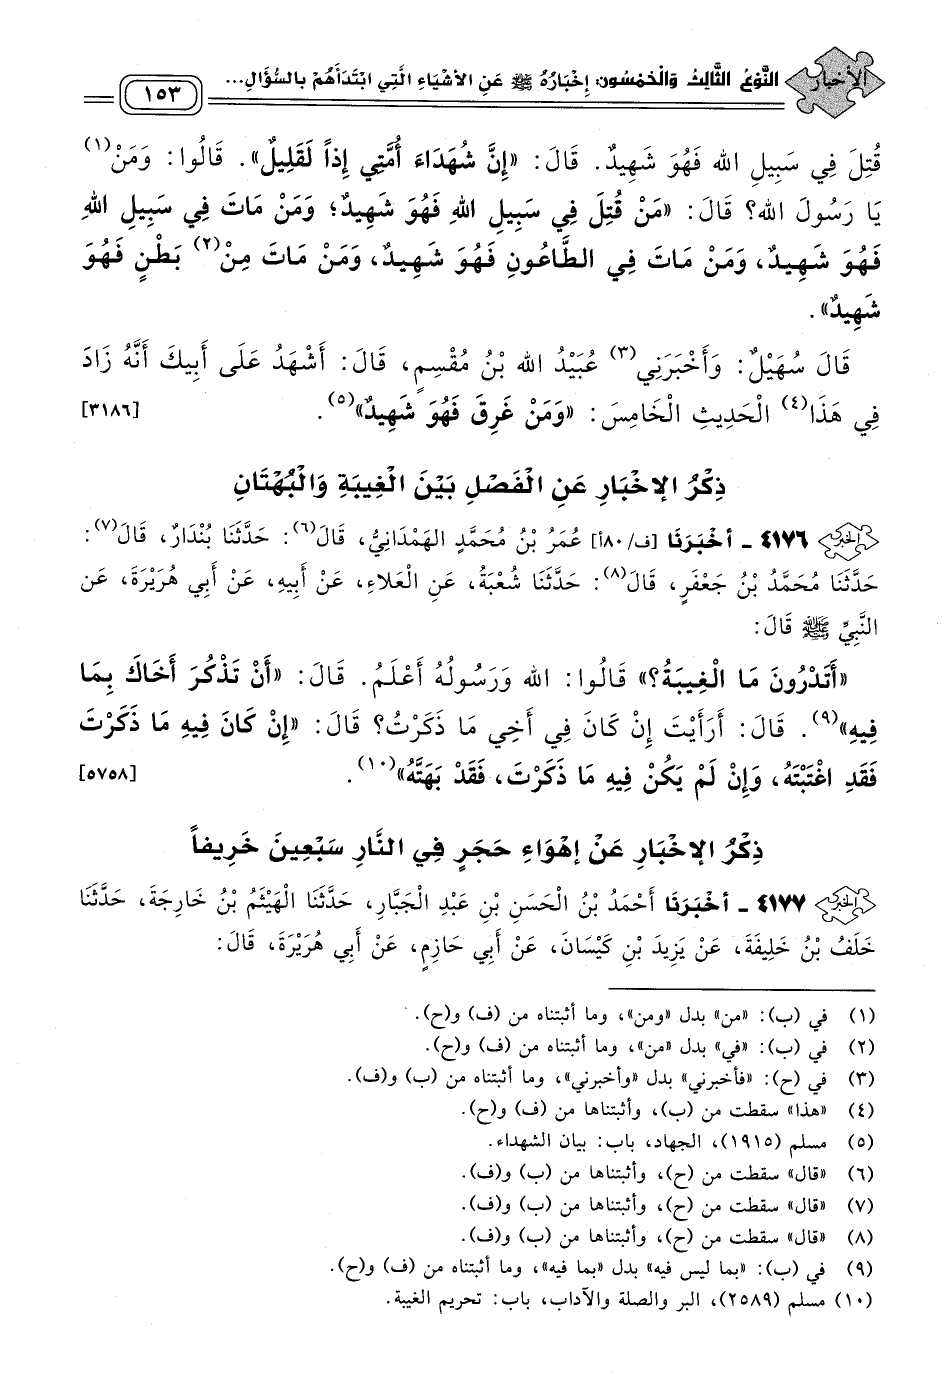 الأخبار النَّوْعُ الثَّالِثُ وَالْخَمْسُونَ: إِخْبَارُهُ ﷺ عَنِ الأَشْيَاءِ الَّتِي ابْتَدَأَهُمْ بِالسُّؤَالِ... ١٥٣
قُتِلَ فِي سَبِيلِ اللهِ فَهُوَ شَهِيدٌ. قَالَ: «إِنَّ شُهَدَاءَ أُمَّتِي إِذاً لَقَلِيلٌ». قَالُوا: وَمَنْ(١)
يَا رَسُولَ اللهِ؟ قَالَ: «مَنْ قُتِلَ فِي سَبِيلِ اللهِ فَهُوَ شَهِيدٌ؛ وَمَنْ مَاتَ فِي سَبِيلِ اللهِ
فَهُوَ شَهِيدٌ، وَمَنْ مَاتَ فِي الطَّاعُونِ فَهُوَ شَهِيدٌ، وَمَنْ مَاتَ مِنْ(٢) بَطْنٍ فَهُوَ
شَهِيدٌ».
قَالَ سُهَيْلٌ: وَأَخْبَرَنِي(٣) عُبَيْدُ اللهِ بْنُ مُقْسِمٍ، قَالَ: أَشْهَدُ عَلَى أَبِيكَ أَنَّهُ زَادَ
فِي هَذَا(٤) الْحَدِيثِ الْخَامِسَ: «وَمَنْ غَرِقَ فَهُوَ شَهِيدٌ»(٥). [٣١٨٦]
ذِكْرُ الإِخْبَارِ عَنِ الْفَصْلِ بَيْنَ الْغِيبَةِ وَالْبُهْتَانِ
الخبر ٤١٧٦ - أَخْبَرَنَا [ف/٨٠أ] عُمَرُ بْنُ مُحَمَّدٍ الهَمْدَانِيُّ، قَالَ(٦): حَدَّثَنَا بُنْدَارٌ، قَالَ(٧):
حَدَّثَنَا مُحَمَّدُ بْنُ جَعْفَرٍ، قَالَ(٨): حَدَّثَنَا شُعْبَةُ، عَنِ الْعَلَاءِ، عَنْ أَبِيهِ، عَنْ أَبِي هُرَيْرَةَ، عَنِ
النَّبِيِّ ﷺ قَالَ:
«أَتَدْرُونَ مَا الْغِيبَةُ؟» قَالُوا: اللهُ وَرَسُولُهُ أَعْلَمُ. قَالَ: «أَنْ تَذْكُرَ أَخَاكَ بِمَا
فِيهِ»(٩). قَالَ: أَرَأَيْتَ إِنْ كَانَ فِي أَخِي مَا ذَكَرْتُ؟ قَالَ: «إِنْ كَانَ فِيهِ مَا ذَكَرْتَ
فَقَدِ اغْتَبْتَهُ، وَإِنْ لَمْ يَكُنْ فِيهِ مَا ذَكَرْتَ، فَقَدْ بَهَتَّهُ»(١٠). [٥٧٥٨]
ذِكْرُ الإِخْبَارِ عَنْ إِهْوَاءِ حَجَرٍ فِي النَّارِ سَبْعِينَ خَرِيفاً
الخبر ٤١٧٧ - أَخْبَرَنَا أَحْمَدُ بْنُ الْحَسَنِ بْنِ عَبْدِ الْجَبَّارِ، حَدَّثَنَا الْهَيْثَمُ بْنُ خَارِجَةَ، حَدَّثَنَا
خَلَفُ بْنُ خَلِيفَةَ، عَنْ يَزِيدَ بْنِ كَيْسَانَ، عَنْ أَبِي حَازِمٍ، عَنْ أَبِي هُرَيْرَةَ، قَالَ:
(١) في (ب): «من» بدل «ومن»، وما أثبتناه من (ف) و(ح).
(٢) في (ب): «في» بدل «من»، وما أثبتناه من (ف) و(ح).
(٣) في (ح): «فأخبرني» بدل «وأخبرني»، وما أثبتناه من (ب) و(ف).
(٤) «هذا» سقطت من (ب)، وأثبتناها من (ف) و(ح).
(٥) مسلم (١٩١٥)، الجهاد، باب: بيان الشهداء.
(٦) «قال» سقطت من (ح)، وأثبتناها من (ب) و(ف).
(٧) «قال» سقطت من (ح)، وأثبتناها من (ب) و(ف).
(٨) «قال» سقطت من (ح)، وأثبتناها من (ب) و(ف).
(٩) في (ب): «بما ليس فيه» بدل «بما فيه»، وما أثبتناه من (ف) و(ح).
(١٠) مسلم (٢٥٨٩)، البر والصلة والآداب، باب: تحريم الغيبة.